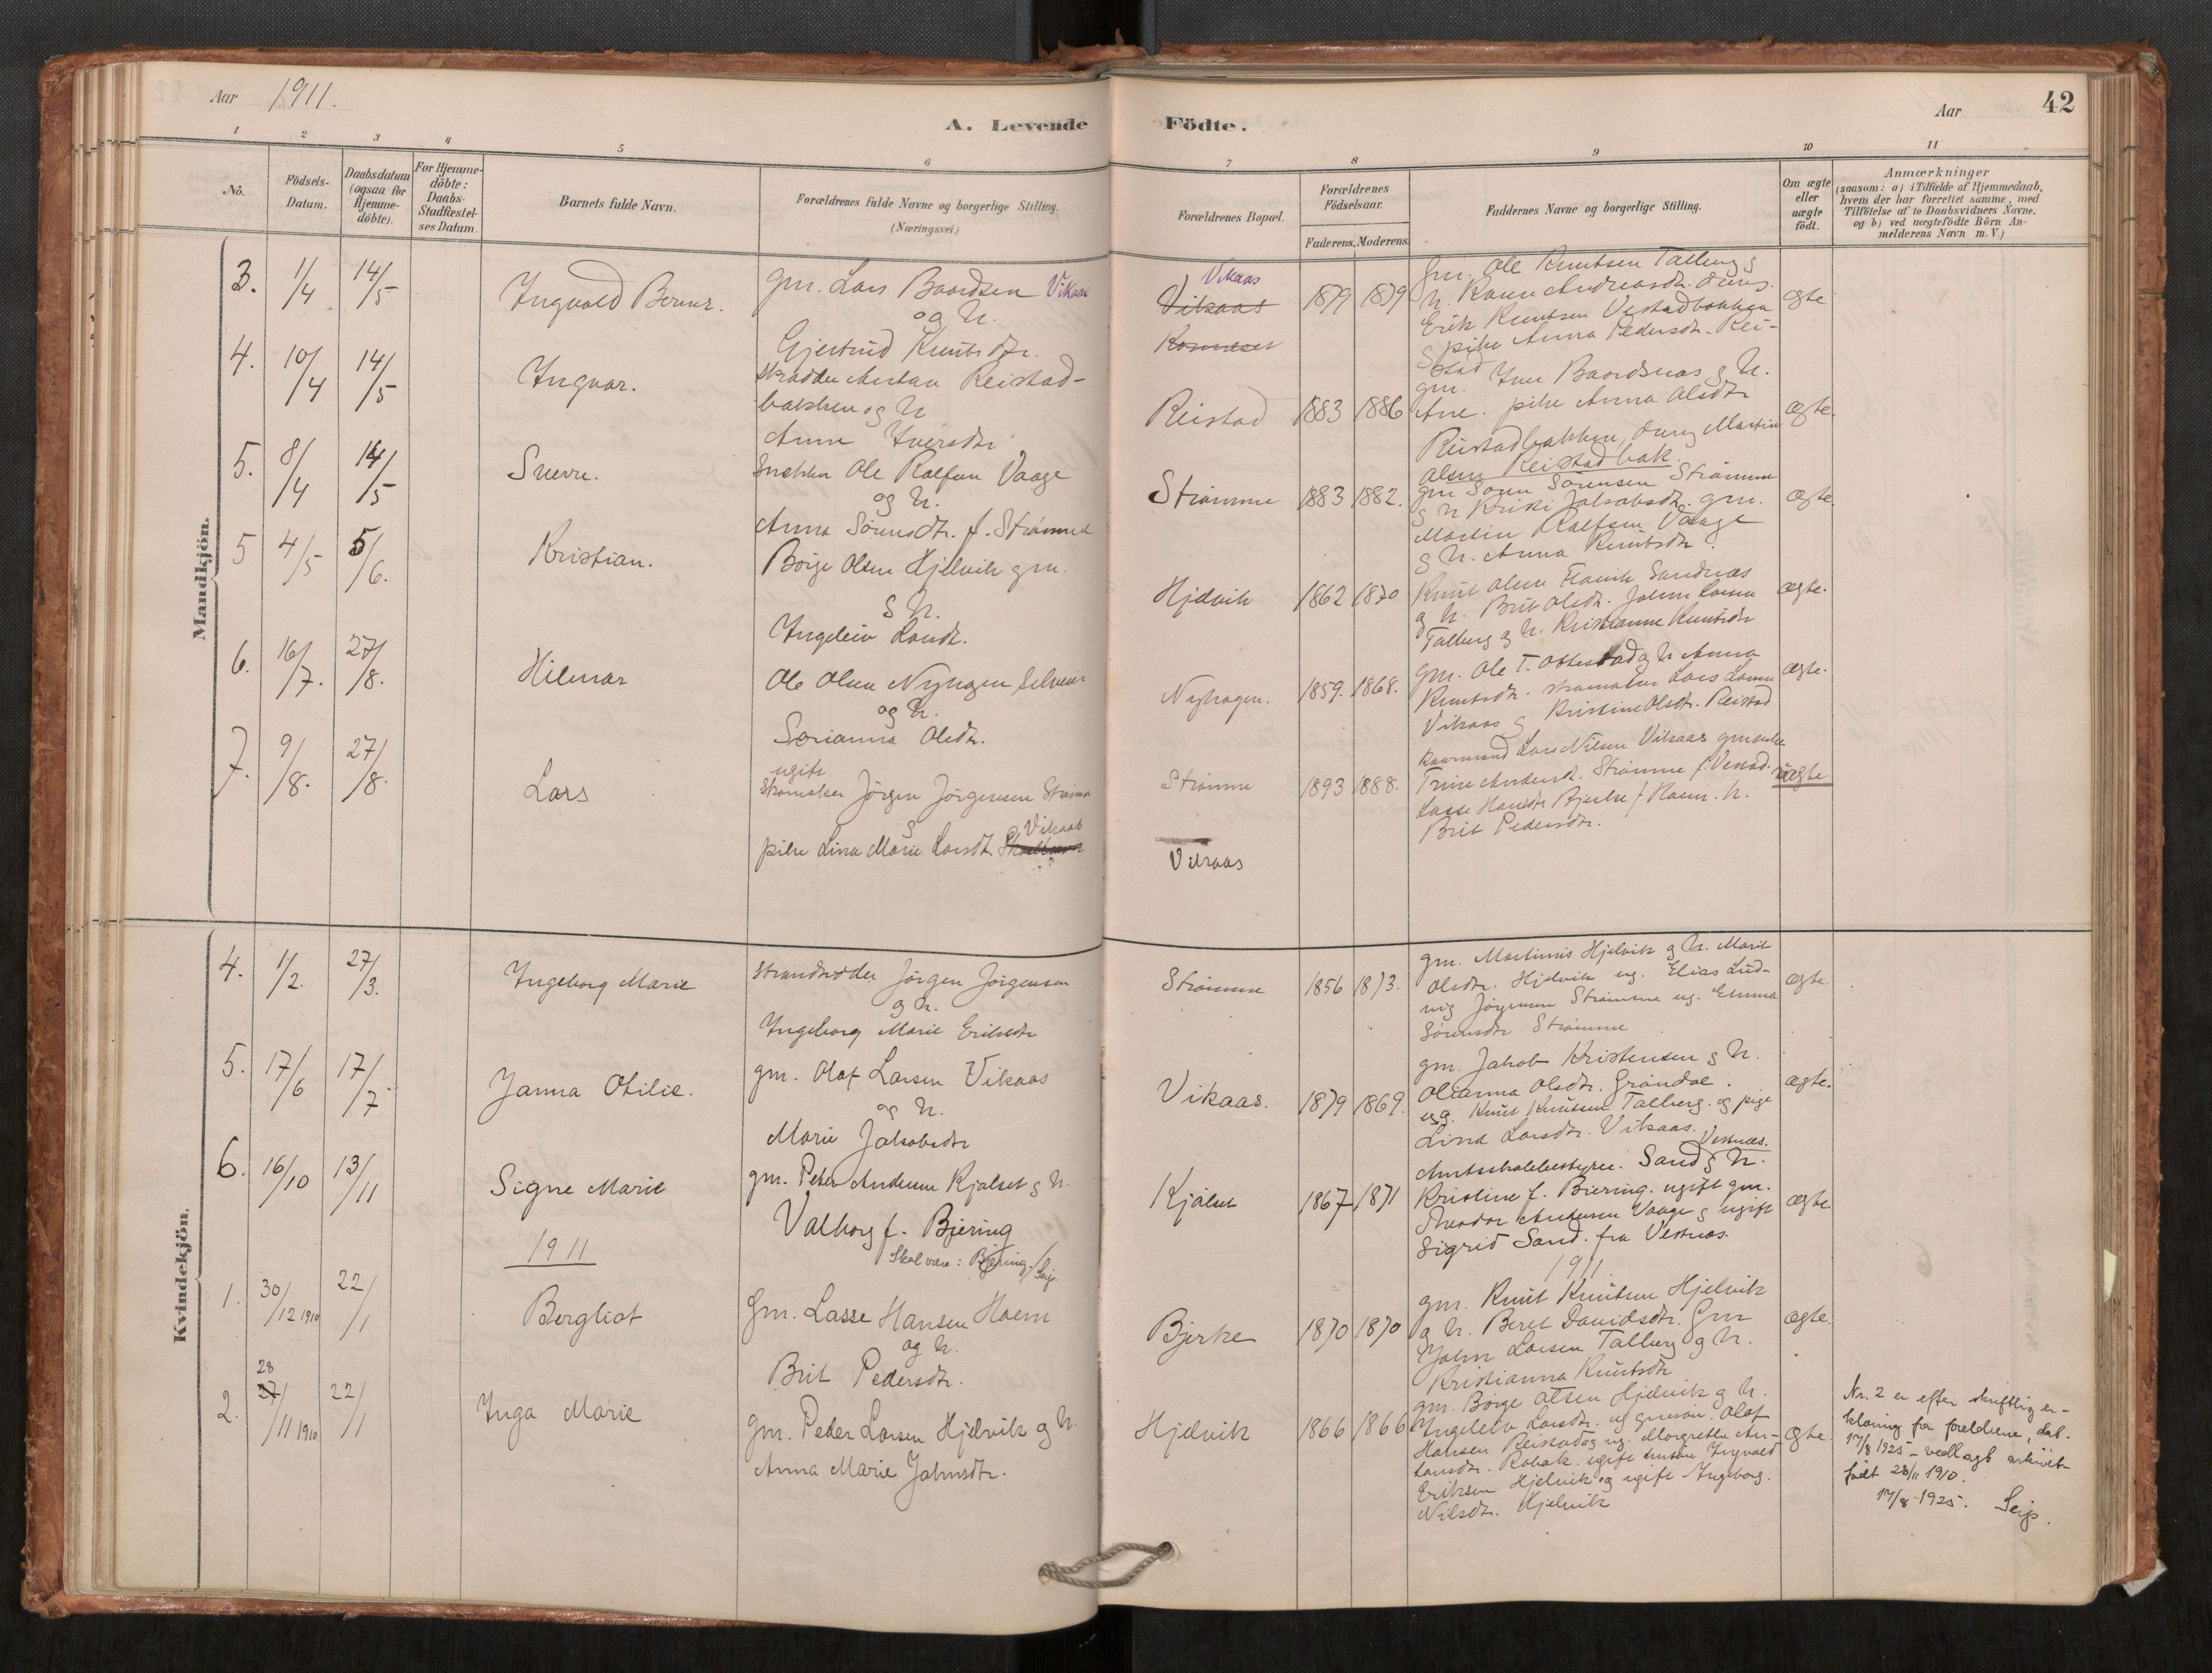 Aar 1911.
A. Levende Födte.
Aar
42
1 2 3 4 5 6 7 8 9 10 11
No.
Födsels-
Datum.
Daabsdatum
(ogsaa for
Hjemme-
döbte).
For Hjemme-
döbte:
Daabs-
Stadfæstel-
ses Datum.
Barnets fulde Navn.
Forældrenes fulde Navne og borgerlige Stilling.
(Næringsvei.)
Forældrenes Bopæl.
Forældrenes
Födselsaar.
Faderens. Moderens.
Faddernes Navne og borgerlige Stilling.
Om ægte
eller
uægte
födt.
Anmærkninger
(saasom: a) i Tilfælde af Hjemmedaab,
hvem der har forrettet samme, med
Tilföielse af to Daabsvidners Navne.
og b) ved uægtefödte Börn An-
melderens Navn m. V.)
Mandkjön.
3. 1/4 14/5
Ingvald Bernr.
Gm. Lars Baardsen Vikaas
og H.
Gjertrud Knutsdtr.
Vikaas
Vikaas
1879 1879
Gm. Ole Knutsen Talberg g
H. Karen Andreasdtr. dreng
Erik Knutsen Vestadbakken
g pike Anna Pedersdtr. Rei-
stad
ægte
4. 10/4 14/5
Ingvar.
Skrædder Anton Reistad-
bakken og H
Anne Iversdtr
Reistad
1883 1886
gm. Iver Baardsnes g H.
Ane. pike Anna Olsdtr
Reistadbakken, dreng Martin
Olsen Reistadbak.
ægte.
5. 8/4 14/5
Sverre.
Snekker Ole Rolfsen Vaage
og H.
Anna Sörensdtr. f. Strömme
Strömme
1883 1882.
gm Sören Sörensen Strömme
g H Kristi Jakobsdtr. gm.
Martin Rolfsen Vaage
g H. Anna Knutsdtr.
ægte.
5 4/5 5/6.
Kristian.
Börge Olsen Hjelvik gm.
g H.
Ingeleiv Larsdtr.
Hjelvik
1862 1870
Knut Olsen Flovik Sandnæs
g H. Brit Olsdtr. John Larsen
Talberg g H. Kristianne Knutsdtr
ægte.
6. 16/7. 27/8.
Hilmar
Ole Olsen Nyhagen Selveier
og H.
Serianna Olsdtr.
Nyhagen.
1859. 1868.
gm. Ole T. Ottestad g H Anna
Knutsdtr. skomaker Lars Larsen
Vikaas g Kristine Olsdtr. Reistad
ægte.
7. 9/8. 27/8.
Lars
ugift
Skomaker Jörgen Jörgensen Strömme
g
Vikaas
pike Lina Marie Larsdtr.
Strömme
Vikaas
1893 1888.
Kaarmand Lars Nilsen Vikaas gm enke
Trine Andersd. Strömme f. Vestad.
Lasse Hansen Bjerke f Hoem. H.
Brit Pedersdtr.
uægte
Kvindekjön.
4. 1/2. 27/3.
Ingeborg Marie
Strandsidder Jörgen Jörgensen
g H.
Ingeborg Marie Eriksdtr
Strömme
1856 1873.
gm. Martinus Hjelvik g H. Marit
Olsdtr. Hjelvik ug. Elias Lud-
vig Jörgensen Strömme ug. Emma
Sörensdtr Strömme
ægte.
5. 17/6 17/7
Janna Otilie.
gm. Olaf Larsen Vikaas
og H.
Marie Jakobsdtr
Vikaas.
1879 1869.
gm. Jakob Kristensen g H.
Olianna Olsdtr. Gröndal.
ug. Knut Knutsen Talberg. og pige
Lina Larsdtr. Vikaas. Vestnæs.
ægte.
6. 16/10 13/11
Signe Marie
gm. Peder Andersen Kjölset g H.
Valborg f. Bjering
Skal være: Bjering. / Seip.
Kjölset
1867 1871
Amtsskolebestyrer. Sand g H.
Kristine f. Biering. ugift gm.
Theodor Andersen Vaage g ugift
Sigrid Sand. fra Vestnæs.
ægte.
1911
1911
1. 30/12 1910 22/1
Bergliot
Gm. Lasse Hansen Hoem
og H.
Brit Pedersdtr.
Bjerke
1870 1870
gm. Knut Knutsen Hjelvik
g H. Beret Davidsdtr. Gm
John Larsen Talberg og H.
Kristianna Knutsdtr
ægte.
2. 28 27/11 1910 22/1
Inga Marie
gm. Peder Larsen Hjelvik g H
Anna Marie Johnsdtr.
Hjelvik
1866 1866
gm. Börge Olsen Hjelvik g H.
Ingeleiv Larsdtr. ug gmsön. Olaf
Hansen Reistad og ug. Margrethe An-
tonsdtr. Robak. ugift Ingvald
Eriksen Hjelvik og ugift Ingeborg.
Nilsdtr. Hjelvik
ægte.
Nr. 2 er efter skriftlig er-
klæring fra foreldrene, dat.
17/8 1925 – vedlagt arkivet –
födt 28/11 1910.
17/8 1925. Seip.